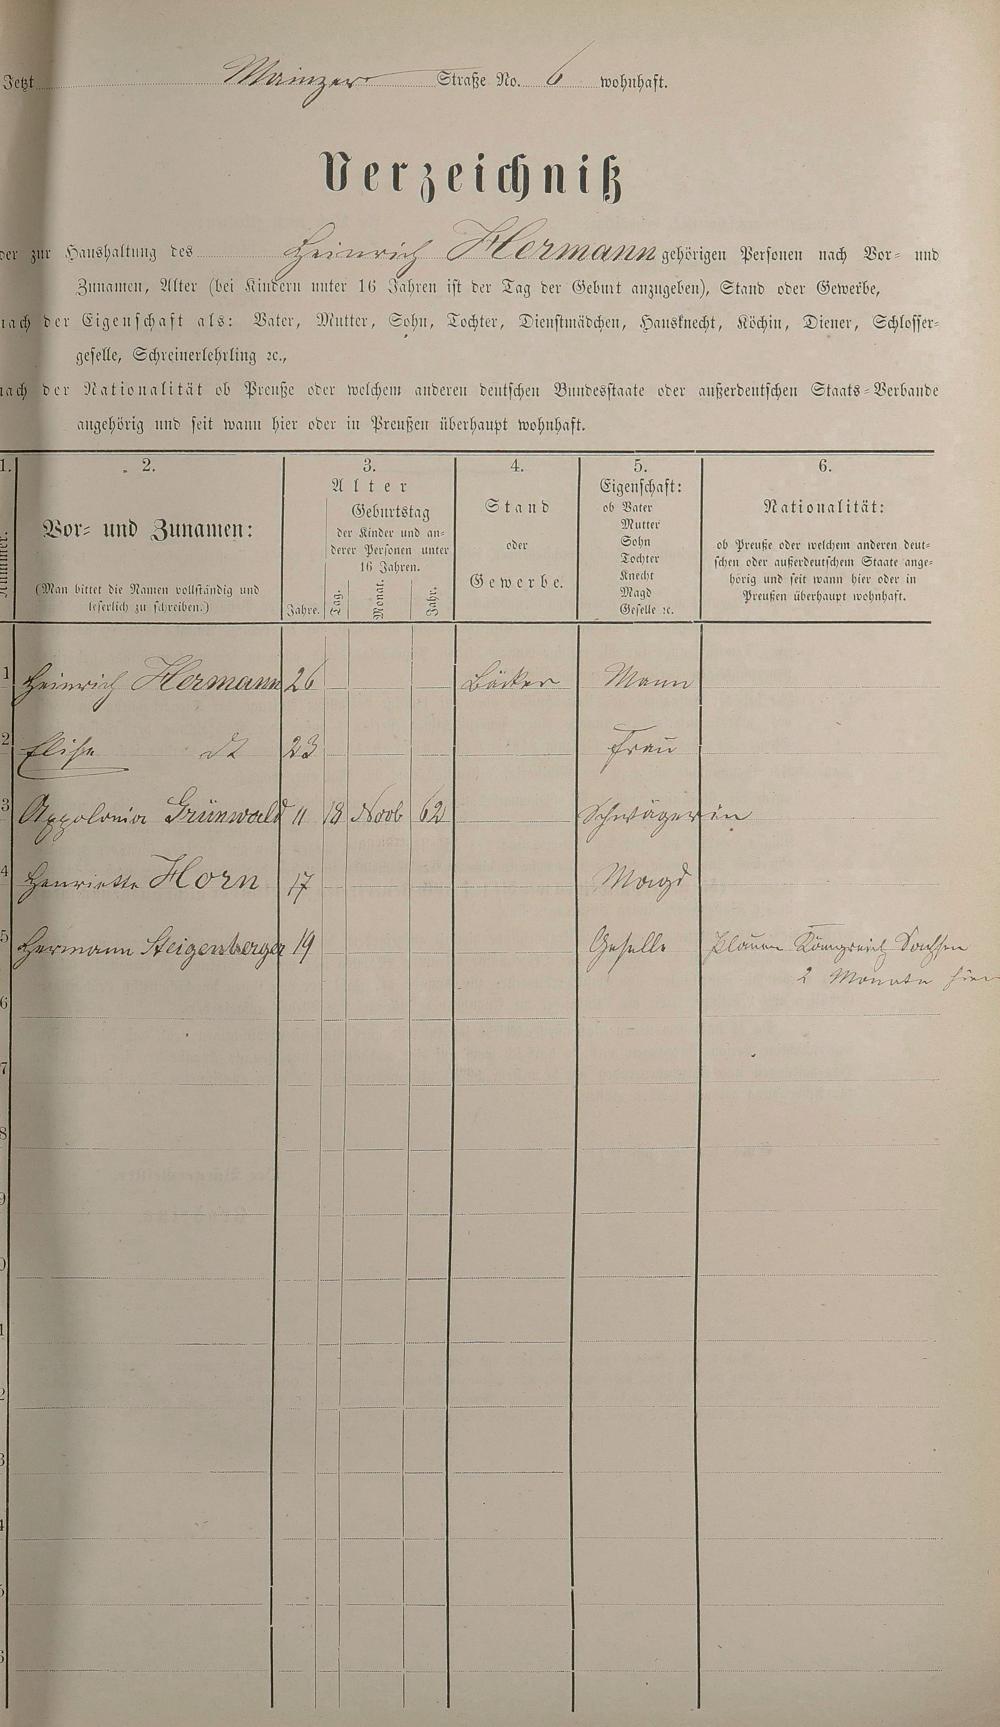 Jetzt Mainzer Straße No. 6 wohnhaft.
Verzeichniß
der zur Haushaltung des Heinrich Hermann gehörigen Personen nach Vor- und
Zunamen, Alter (bei Kindern unter 16 Jahren ist der Tag der Geburt anzugeben), Stand oder Gewerbe,
nach der Eigenschaft als: Vater, Mutter, Sohn, Tochter, Dienstmädchen, Hausknecht, Köchin, Diener, Schlosser-
geselle, Schreinerlehrling ꝛc.,
nach der Nationalität ob Preuße oder welchem anderen deutschen Bundesstaate oder außerdeutschen Staats-Verbande
angehörig und seit wann hier oder in Preußen überhaupt wohnhaft.
1. 2. 3. 4. 5. 6.
Nummer.
Vor- und Zunamen:
(Man bittet die Namen vollständig und
leserlich zu schreiben.)
Alter
Jahre.
Geburtstag
der Kinder und an-
derer Personen unter
16 Jahren.
Tag. Monat. Jahr.
Stand
oder
Gewerbe.
Eigenschaft:
ob Vater
Mutter
Sohn
Tochter
Knecht
Magd
Geselle ꝛc.
Nationalität:
ob Preuße oder welchem anderen deut-
schen oder außerdeutschem Staate ange-
hörig und seit wann hier oder in
Preußen überhaupt wohnhaft.
1 Heinrich Hermann 26 Bäcker Mann
2 Elise dt 23 Frau
3 Appolonia Grünwald 11 18 Novb 62 Schwägerin
4 Henriette Horn 17 Magd
5 Hermann Steigenberger 19 Geselle Plauen Königreich Sachsen
2 Monate hier
6
7
8
9
0
1
2
3
4
5
6